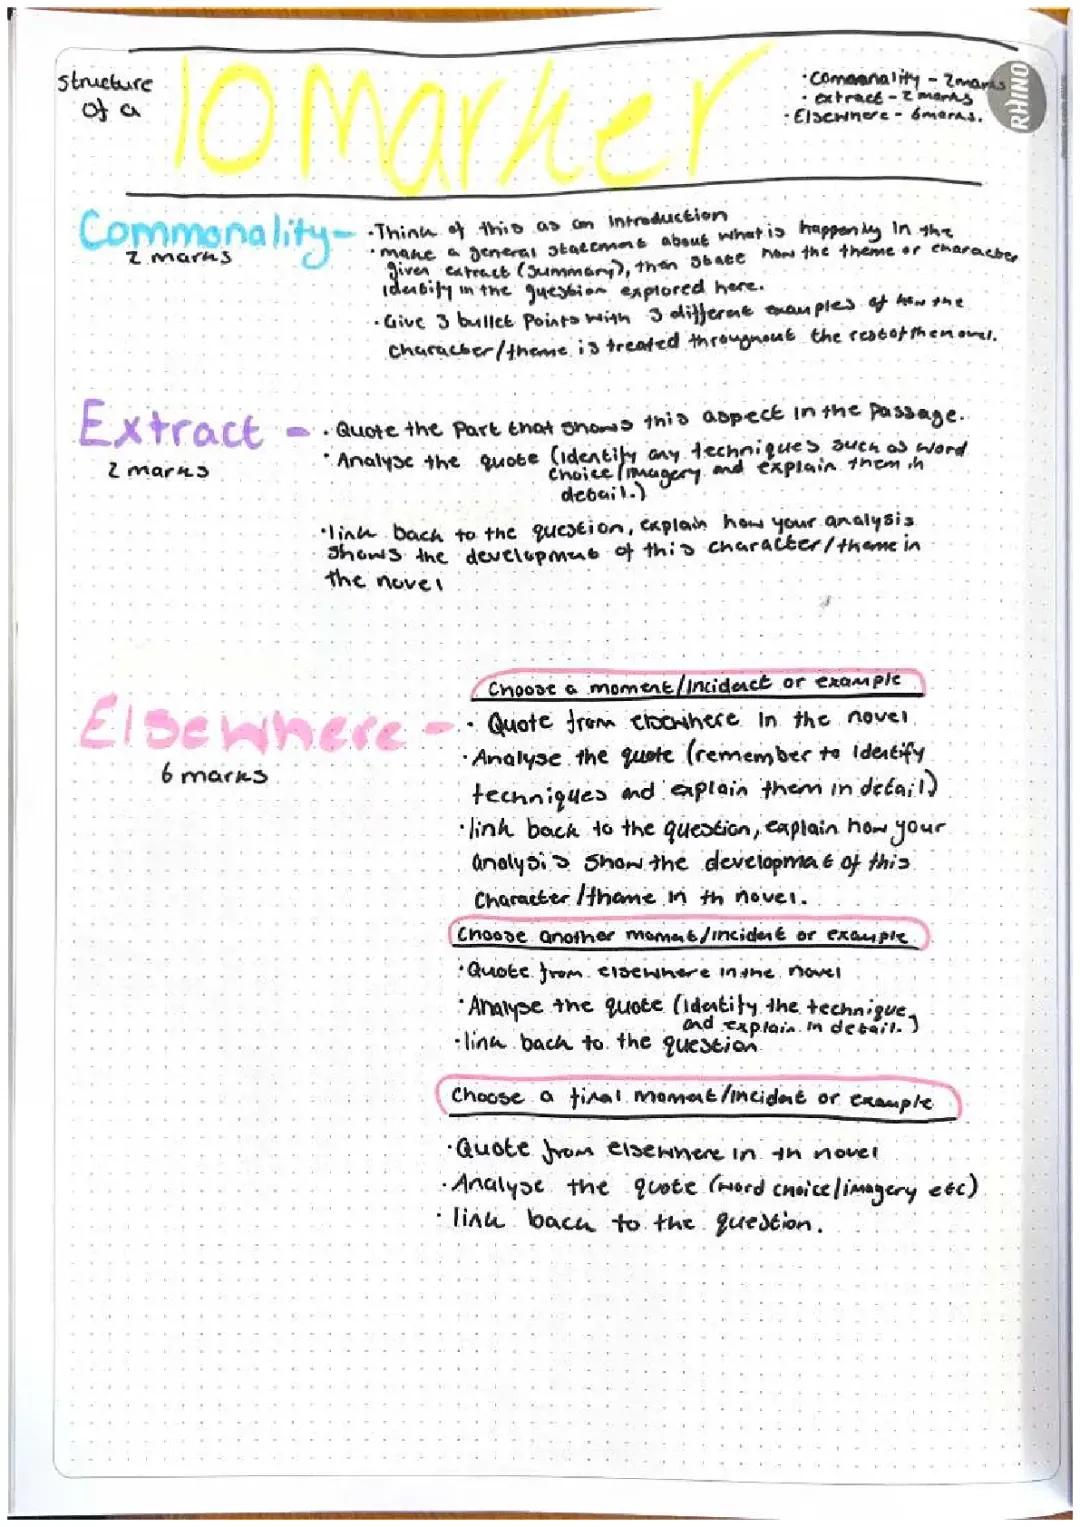 structure
of a
10 Marker
· Commanality - 2 marks
· extract - 2 marks
· Elsewhere - 6 marks.
RHINO
Commonality -
2 marks
· Think of this as an introduction
· make a general statement about what is happening in the
given extract (summary), then state how the theme or character
identify in the question explored here.
· Give 3 bullet Points with 3 different examples of how the
character/theme is treated throughout the rest of the novel.
Extract -
2 marks
· Quote the Part that shows this aspect in the passage.
· Analyse the quote (identify any techniques such as word
choice/imagery and explain them in
detail.)
· link back to the question, explain how your analysis
shows the development of this character/theme in
the novel
Elsewhere -
6 marks
Choose a moment/incident or example
· Quote from elsewhere in the novel
· Analyse the quote (remember to identify
techniques and explain them in detail)
· link back to the question, explain how your
analysis show the development of this
Character/theme in th novel.
Choose another moment/incident or example
· Quote from elsewhere in the novel
· Analyse the quote (identify the technique,
and explain in detail.)
· link back to the question
Choose a final moment/incident or example
· Quote from elsewhere in th novel
· Analyse the quote (word choice/imagery etc)
· link back to the question.